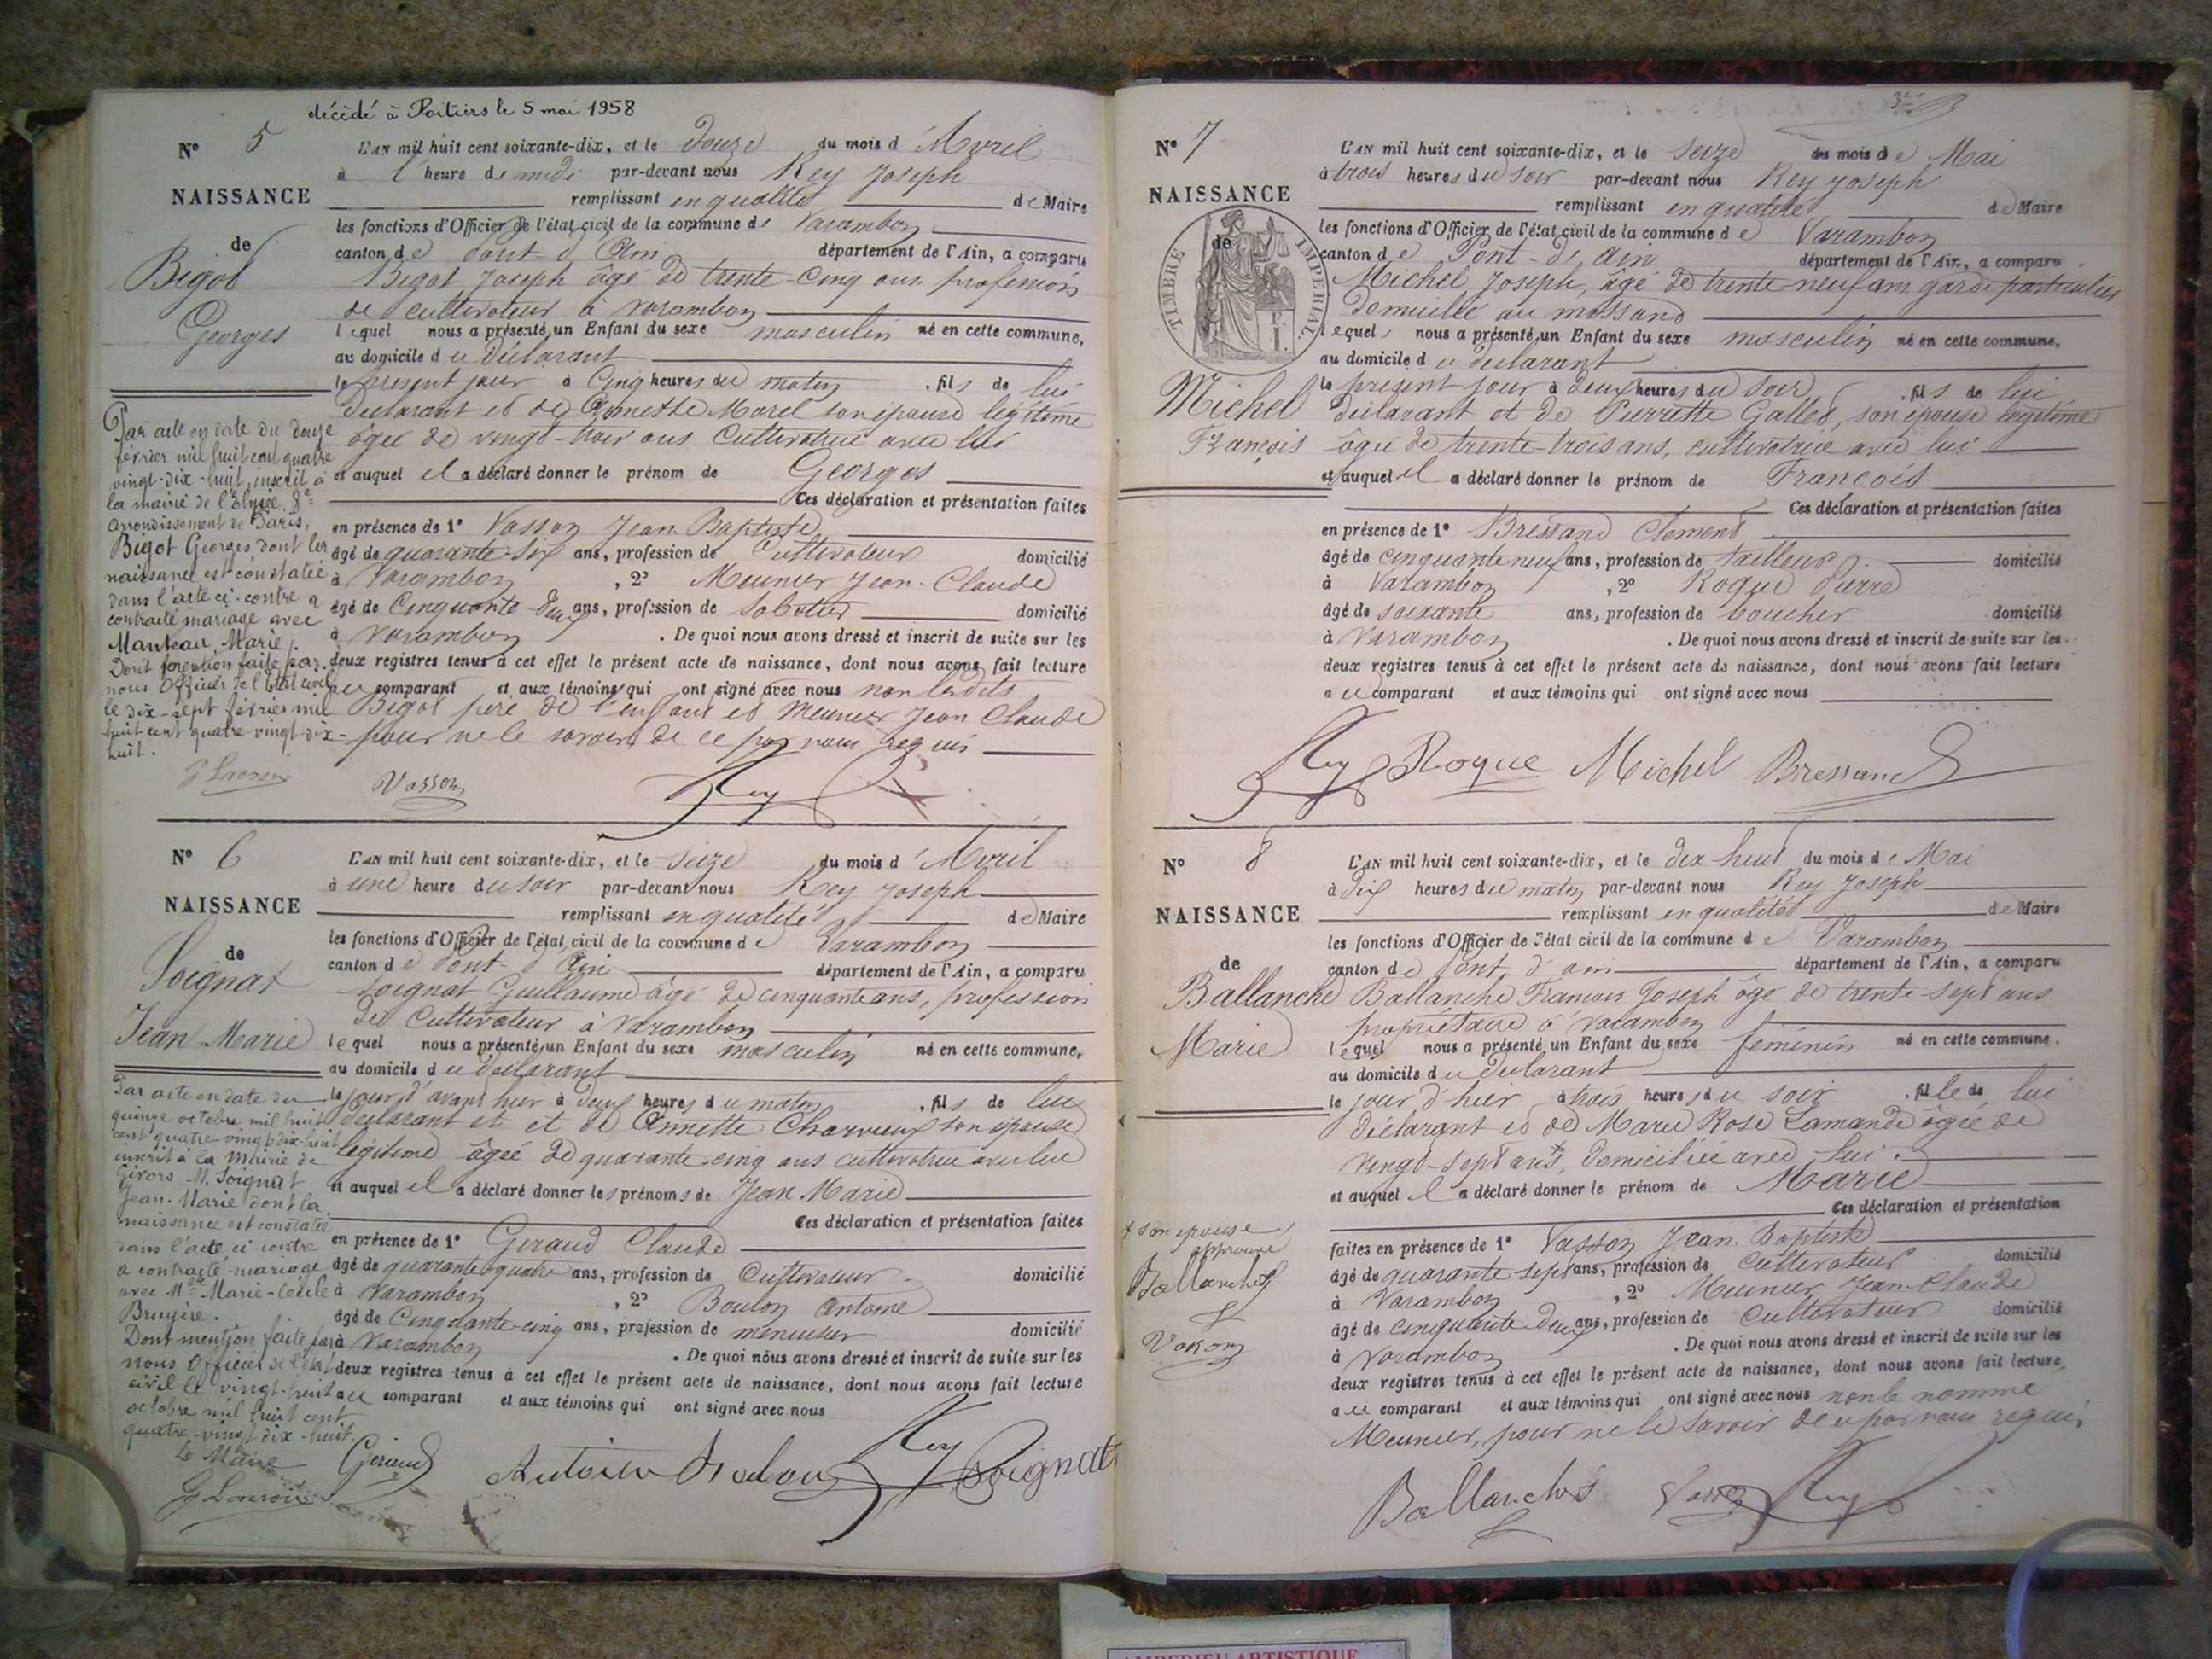 décédé à Poitiers le 5 mai 1958
N° 5
NAISSANCE
de
Bigot
Georges
L'AN mil huit cent soixante-dix, et le douze du mois d'Avril
à l'heure de midi par-devant nous Rey Joseph
remplissant en qualité de Maire
les fonctions d'Officier de l'état civil de la commune de Varambon
canton de Pont-d'Ain département de l'Ain, a comparu
Bigot Joseph âgé de trente-cinq ans profession
de cultivateur à Varambon
lequel nous a présenté un Enfant du sexe masculin né en cette commune,
au domicile du déclarant
le présent jour à Cinq heures du matin, fils de lui
déclarant et de Annette Morel son épouse légitime
âgée de vingt-trois ans Cultivatrice avec lui
et auquel il a déclaré donner le prénom de Georges
Ces déclaration et présentation faites
en présence de 1° Vasson Jean Baptiste
âgé de quarante-six ans, profession de Cultivateur domicilié
à Varambon, 2° Meunier Jean-Claude
âgé de Cinquante-deux ans, profession de Sabotier domicilié
à Varambon. De quoi nous avons dressé et inscrit de suite sur les
deux registres tenus à cet effet le présent acte de naissance, dont nous avons fait lecture
au comparant et aux témoins qui ont signé avec nous non lesdits
Bigot père de l'enfant et Meunier Jean Claude
pour ne le savoir de ce par nous requis
Par acte en date du douze
février mil huit cent quatre
vingt-dix-huit, inscrit à
la mairie de l'Elysée, 8e
arrondissement de Paris,
Bigot Georges, dont la
naissance est constatée
dans l'acte ci-contre a
contracté mariage avec
Manteau Marie.
Dont mention faite par
nous Officier de l'Etat civil
le dix-sept février mil
huit cent quatre-vingt-dix-
huit.
Vasson Rey
N° 6
NAISSANCE
de
Soignat
Jean-Marie
L'AN mil huit cent soixante-dix, et le Seize du mois d'Avril
à une heure du soir par-devant nous Rey Joseph
remplissant en qualité de Maire
les fonctions d'Officier de l'état civil de la commune de Varambon
canton de Pont-d'Ain département de l'Ain, a comparu
Soignat Guillaume âgé de cinquante ans, profession
de Cultivateur à Varambon
lequel nous a présenté un Enfant du sexe masculin né en cette commune,
au domicile du déclarant
le jour d'avant hier à deux heures du matin, fils de lui
déclarant et et de Annette Charvieux son épouse
légitime âgée de quarante cinq ans cultivatrice avec lui
et auquel il a déclaré donner les prénoms de Jean Marie
Ces déclaration et présentation faites
en présence de 1° Geraud Claude
âgé de quarante-quatre ans, profession de Cultivateur domicilié
à Varambon, 2° Boulon Antoine
âgé de Cinquante-cinq ans, profession de menuisier domicilié
à Varambon. De quoi nous avons dressé et inscrit de suite sur les
deux registres tenus à cet effet le présent acte de naissance, dont nous avons fait lecture
au comparant et aux témoins qui ont signé avec nous
Par acte en date du
quinze octobre mil huit
cent quatre vingt dix-huit
inscrit à la Mairie de
Givors M. Soignat
Jean-Marie dont la
naissance est constatée
dans l'acte ci-contre
a contracté mariage
avec Mlle Marie-Cécile
Bruyère.
Dont mention faite par
nous Officier de l'état
civil le vingt-huit
octobre mil huit cent
quatre-vingt dix-huit.
Le Maire
Geraud Antoine Boulon Rey Soignat
N° 7
NAISSANCE
de
TIMBRE IMPERIAL
Michel
François
L'AN mil huit cent soixante-dix, et le Seize du mois de Mai
à trois heures du soir par-devant nous Rey Joseph
remplissant en qualité de Maire
les fonctions d'Officier de l'état civil de la commune de Varambon
canton de Pont-d'Ain département de l'Ain, a comparu
Michel Joseph, âgé de trente-neuf ans garde particulier
domicilié au
lequel nous a présenté un Enfant du sexe masculin né en cette commune,
au domicile du déclarant
le présent jour à deux heures du soir, fils de lui
déclarant et de Pierrette Gallet, son épouse légitime
âgée de trente-trois ans, cultivatrice avec lui
et auquel il a déclaré donner le prénom de François
Ces déclaration et présentation faites
en présence de 1° Bressand Clément
âgé de cinquante neuf ans, profession de tailleur domicilié
à Varambon, 2° Roque Pierre
âgé de soixante ans, profession de boucher domicilié
à Varambon. De quoi nous avons dressé et inscrit de suite sur les
deux registres tenus à cet effet le présent acte de naissance, dont nous avons fait lecture
au comparant et aux témoins qui ont signé avec nous
Rey Roque Michel Bressand
N° 8
NAISSANCE
de
Ballanche
Marie
L'AN mil huit cent soixante-dix, et le dix huit du mois de Mai
à dix heures du matin par-devant nous Rey Joseph
remplissant en qualité de Maire
les fonctions d'Officier de l'état civil de la commune de Varambon
canton de Pont d'ain département de l'Ain, a comparu
Ballanche François Joseph âgé de trente-sept ans
propriétaire à Varambon
lequel nous a présenté un Enfant du sexe féminin né en cette commune,
au domicile du déclarant
le jour d'hier à trois heures du soir, fille de lui
déclarant et de Marie Rose Lamande âgée de
vingt-sept ans, domiciliée avec lui.
et auquel il a déclaré donner le prénom de Marie
Ces déclaration et présentation
faites en présence de 1° Vasson Jean-Baptiste
âgé de quarante-sept ans, profession de cultivateur domicilié
à Varambon, 2° Meunier Jean-Claude
âgé de cinquante-deux ans, profession de Cultivateur domicilié
à Varambon. De quoi nous avons dressé et inscrit de suite sur les
deux registres tenus à cet effet le présent acte de naissance, dont nous avons fait lecture,
au comparant et aux témoins qui ont signé avec nous non le nommé
Meunier, pour ne le savoir de ce par nous requis
+ son épouse
approuvé
Ballanche
Vasson
Ballanche Vasson Rey
AMBERIEU ARTISTIQUE